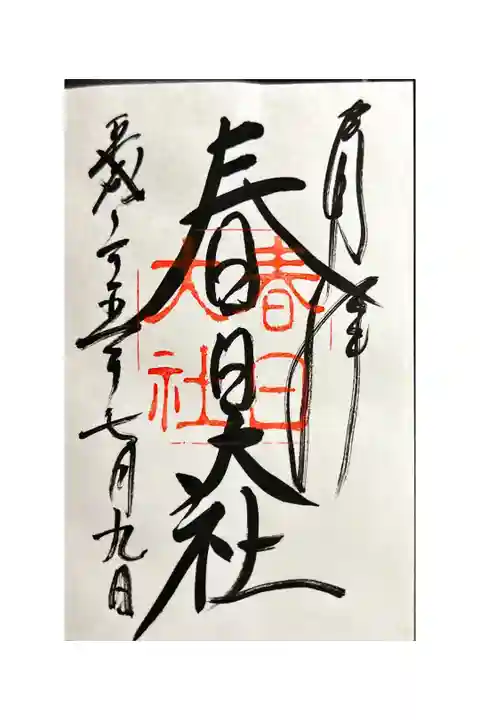 奉拝
春日大社
春日
大社
平成二十五年七月九日